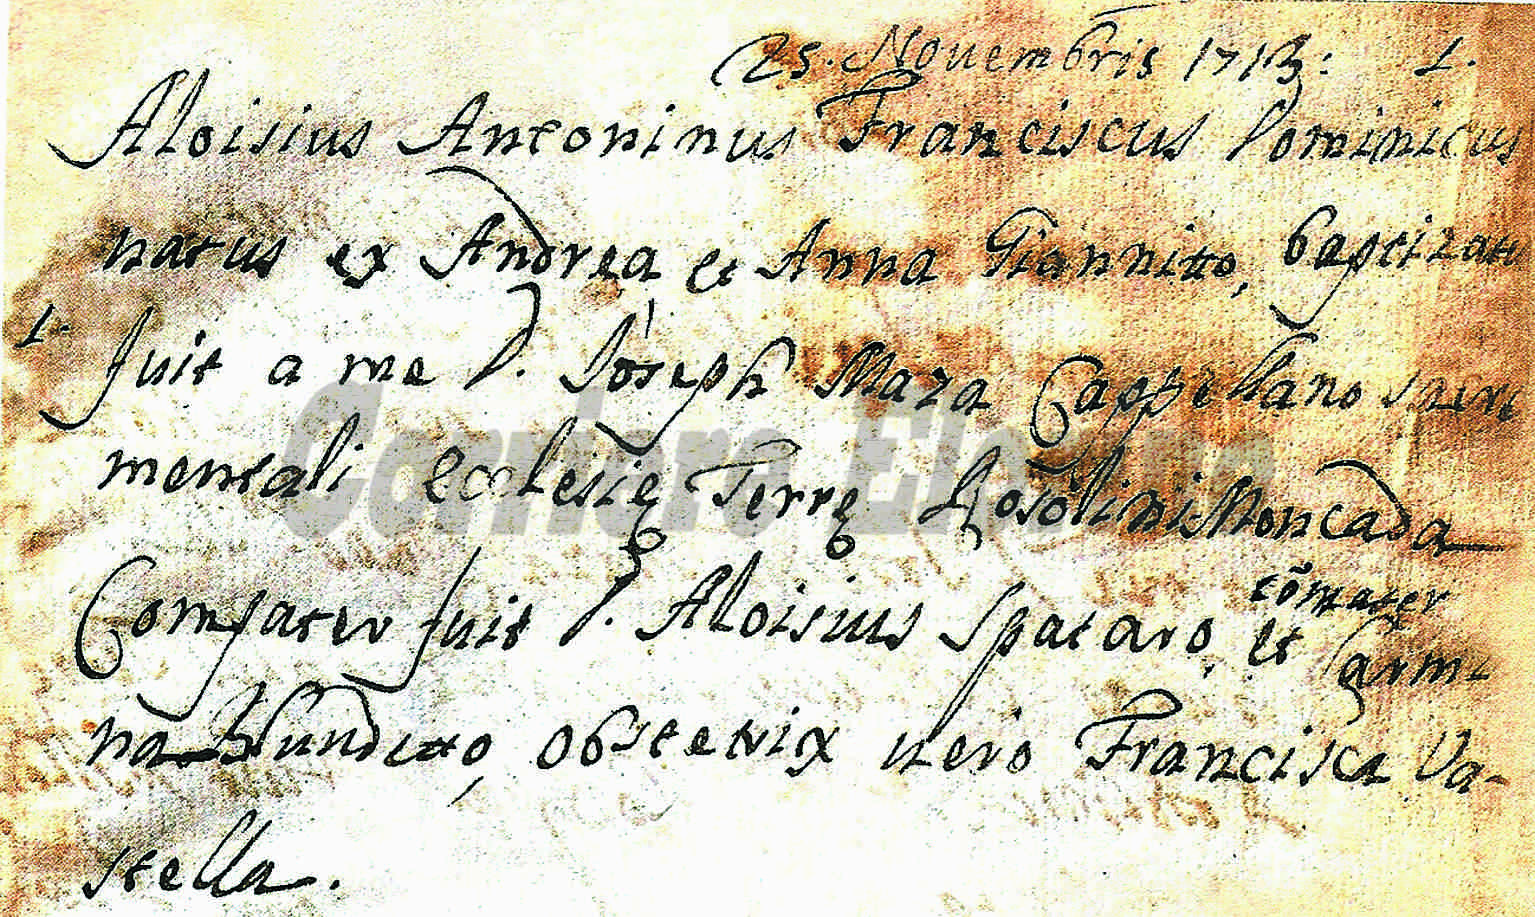 25. Novembris 1713: 1.
Aloisius Antoninus Franciscus Dominicus
natus ex Andrea et Anna Giannitto, baptizatu
1. fuit a me D. Joseph Maza Cappellano sacra
mentali Ecclesię Terrę Rosolini Moncada
Compater fuit D. Aloisius Spataro, et Carmi
cōmater
na obstetrix vero Francisca Va-
stella.
Corriere Elorino